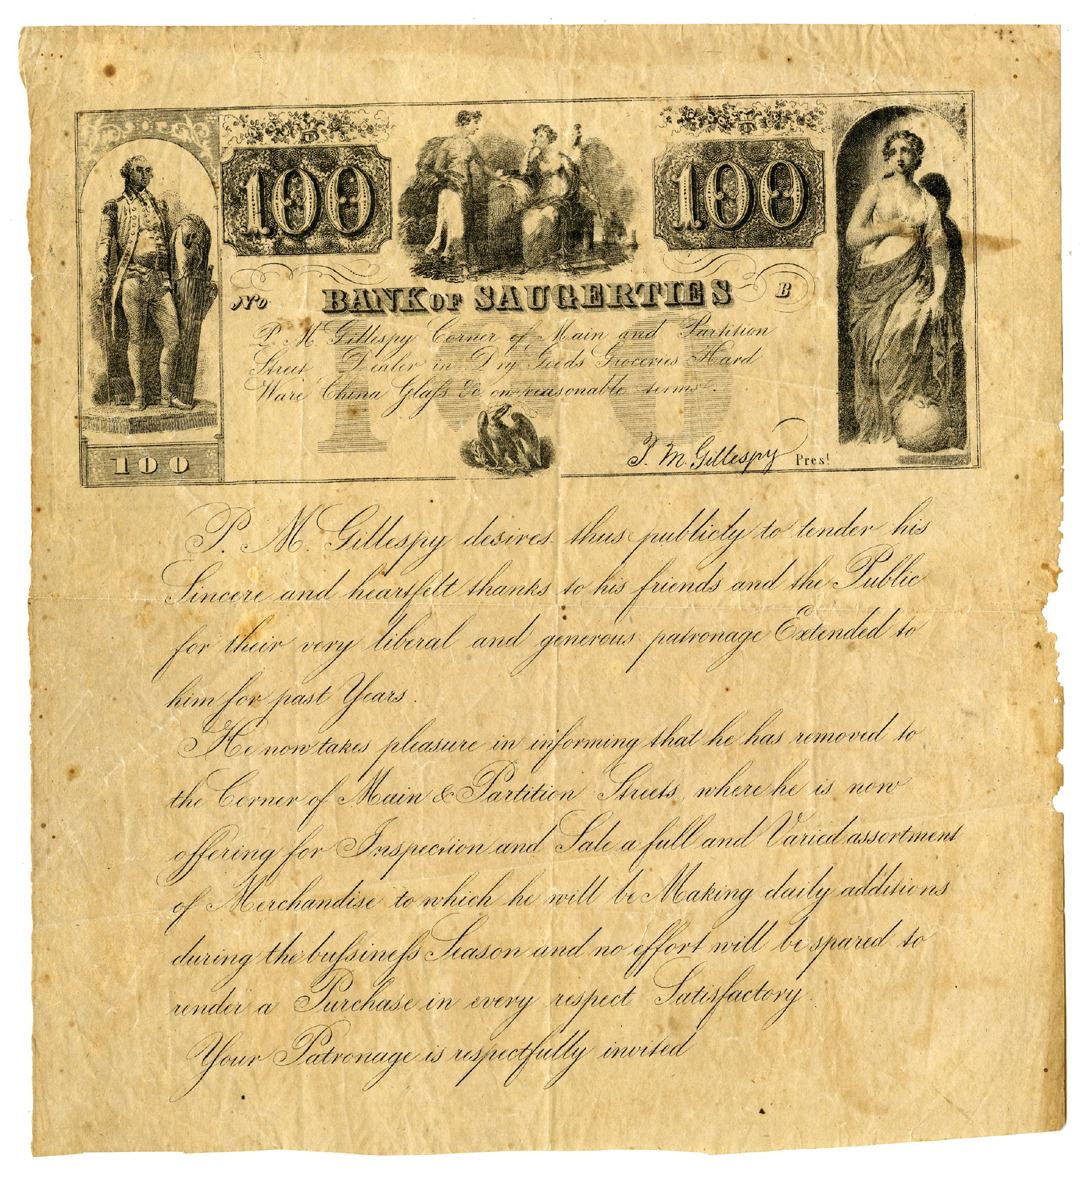 100
100
No
BANK OF SAUGERTIES
B
P. M. Gillespy Corner of Main and Partition
Street Dealer in Dry Goods Groceries Hard
Ware China Glaſs &c on reasonable terms.
100
100
P. M. Gillespy Prest
P. M. Gillespy desires thus publicly to tender his
Sincere and heartfelt thanks to his friends and the Public
for their very liberal and generous patronage Extended to
him for past Years.
He now takes pleasure in informing that he has removed to
the Corner of Main & Partition Streets, where he is now
offering for Inspection and Sale a full and Varied assortment
of Merchandise to which he will be Making daily additions
during the buſsineſs Season and no effort will be spared to
render a Purchase in every respect Satisfactory.
Your Patronage is respectfully invited